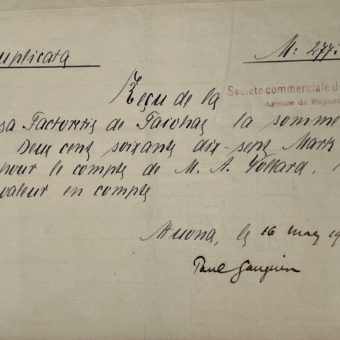 uplicata M: 277.
Reçu de la Société commerciale d
Agence de Papeete
sa Factorerie de Tacohae la somme
Deux cent soixante dix-sept Mark
pour le compte de M. A. Vollard,
valeur en compte
Atuona, le 16 may 19
Paul Gauguin